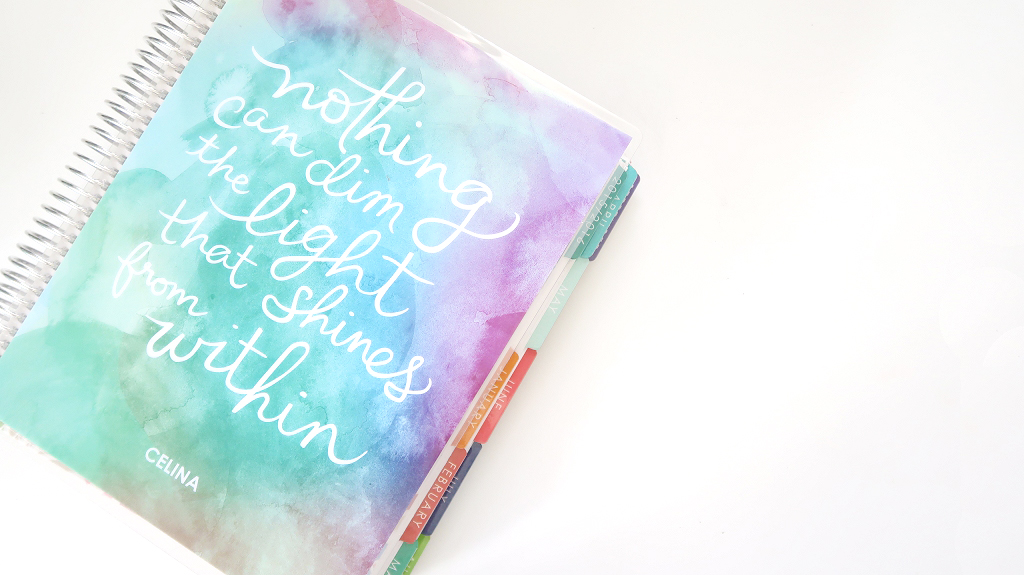 nothing
can dim
the light
that shines
from
within
CELINA
APRIL
2016/2017
MAY
JUNE
JANUARY
JULY
FEBRUARY